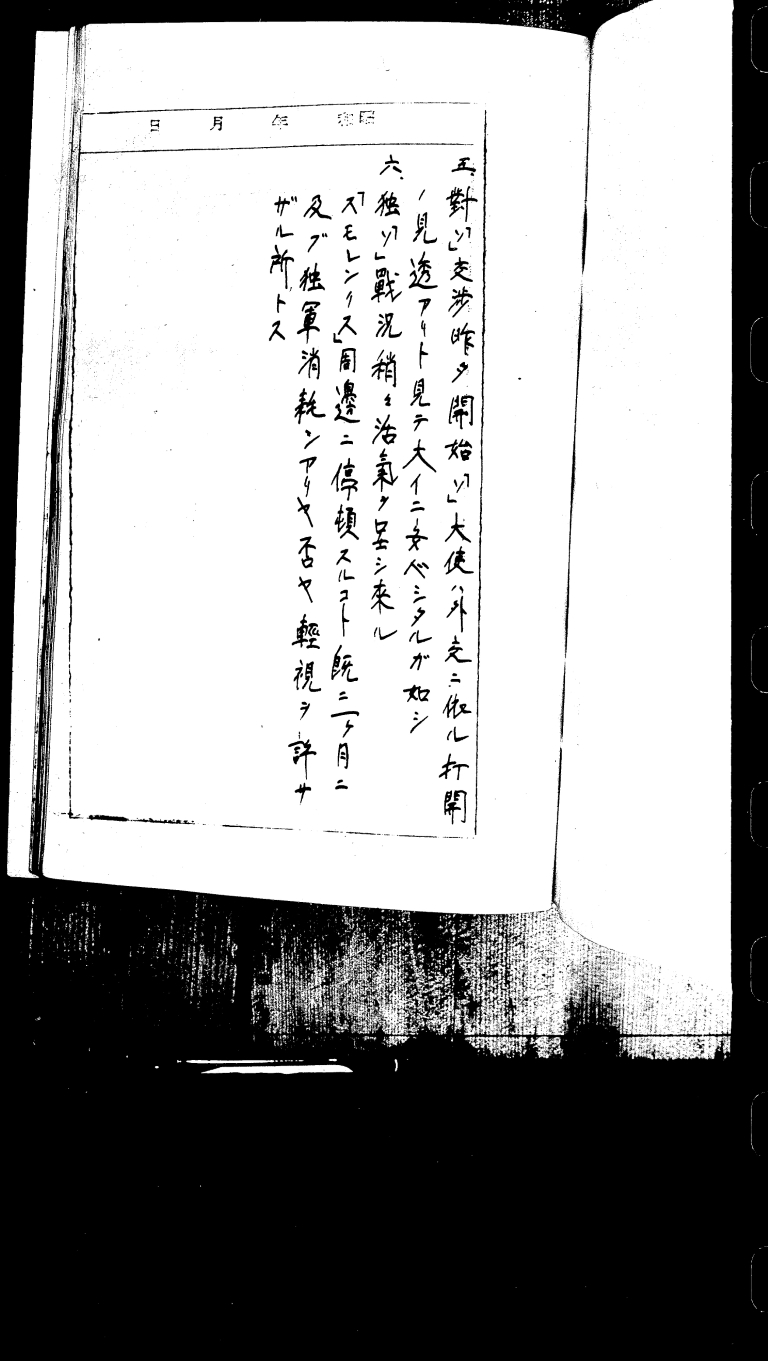 昭和 年 月 日
五、對「ソ」交渉昨夕開始「ソ」大使ハ外交ニ依ル打開
ノ見透アリト見テ大イニ安ベシタルガ如シ
六、独「ソ」戰況稍々活氣ヲ呈シ來ル
「スモレンクス」周邊ニ停頓スルコト既ニ一ヶ月ニ
及ブ独軍消耗ンアリヤ否ヤ輕視ヲ許サ
ザル所トス